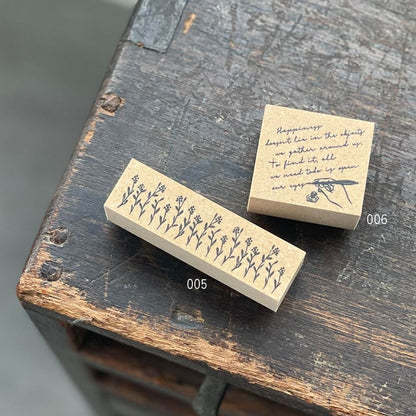 Happiness
doesn't lie in the objects
we gather around us.
To find it, all
we need to do is open
our eyes
006
005